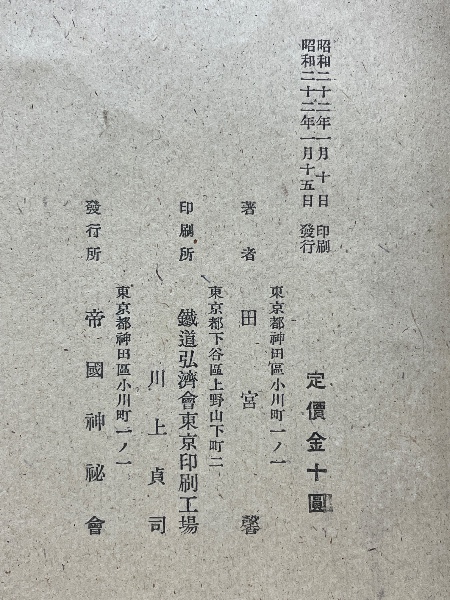 昭和二十二年一月十日 印刷
昭和二十二年一月十五日 發行
定價金十圓
東京都神田區小川町一ノ一
著者 田宮馨
東京都下谷區上野山下町二
印刷所 鐵道弘濟會東京印刷工場
川上貞司
東京都神田區小川町一ノ一
發行所 帝國神祕會